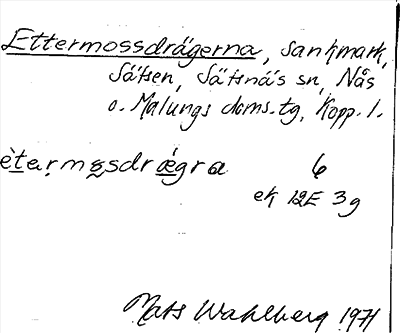 Ettermossdrägerna, sankmark,
Sätsen, Sätsnäs sn, Nås
o. Malungs doms.tg, Kopp. l.
ètarmosdrǽgra 6
ek 12E 3g
Mats Wahlberg 1971